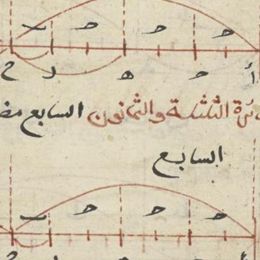 ح ح ح ب
أ ح ه د ح
ئرة الثلثة والثمانون السابع مض
السابع
ح ح ح ب